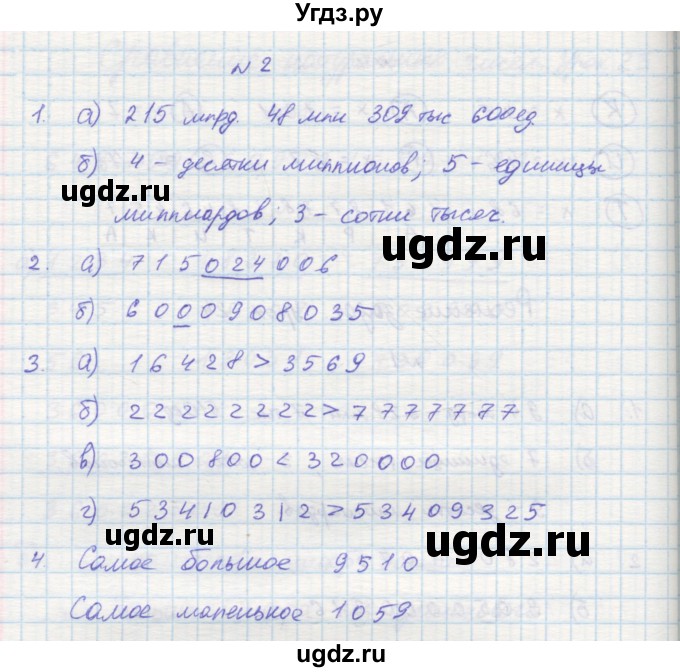 Угдз.ру
№ 2
1. а) 215 млрд. 48 млн 309 тыс 600 ед.
б) 4 – десятки миллионов; 5 – единицы
ugdz.ru
миллиардов; 3 – сотни тысяч.
ugdz.ru
2. а) 715024006
б) 6000908035
ugdz.ru
3. а) 16428 > 3569
б) 22222222 > 7777777
в) 300800 < 320000
г) 53410312 > 53409325
ugdz.ru
ugdz.ru
4 Самое большое 9510
Самое маленькое 1059
ugdz.ru